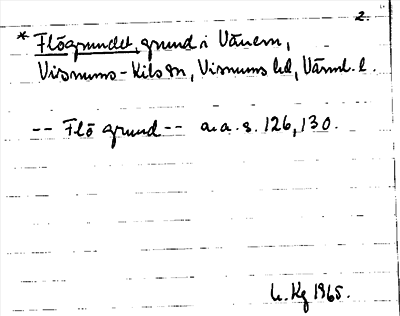 2.
* Flögrundet, grund i Vänern,
Visnums-Kils sn, Visnums hd, Värml. l.
-- Flö grund -- a.a. s. 126, 130.
Kg 1965.